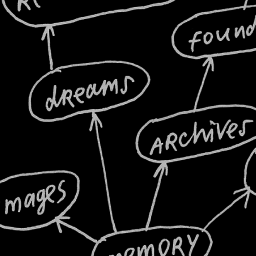 found
dreams
Archives
mages
memory